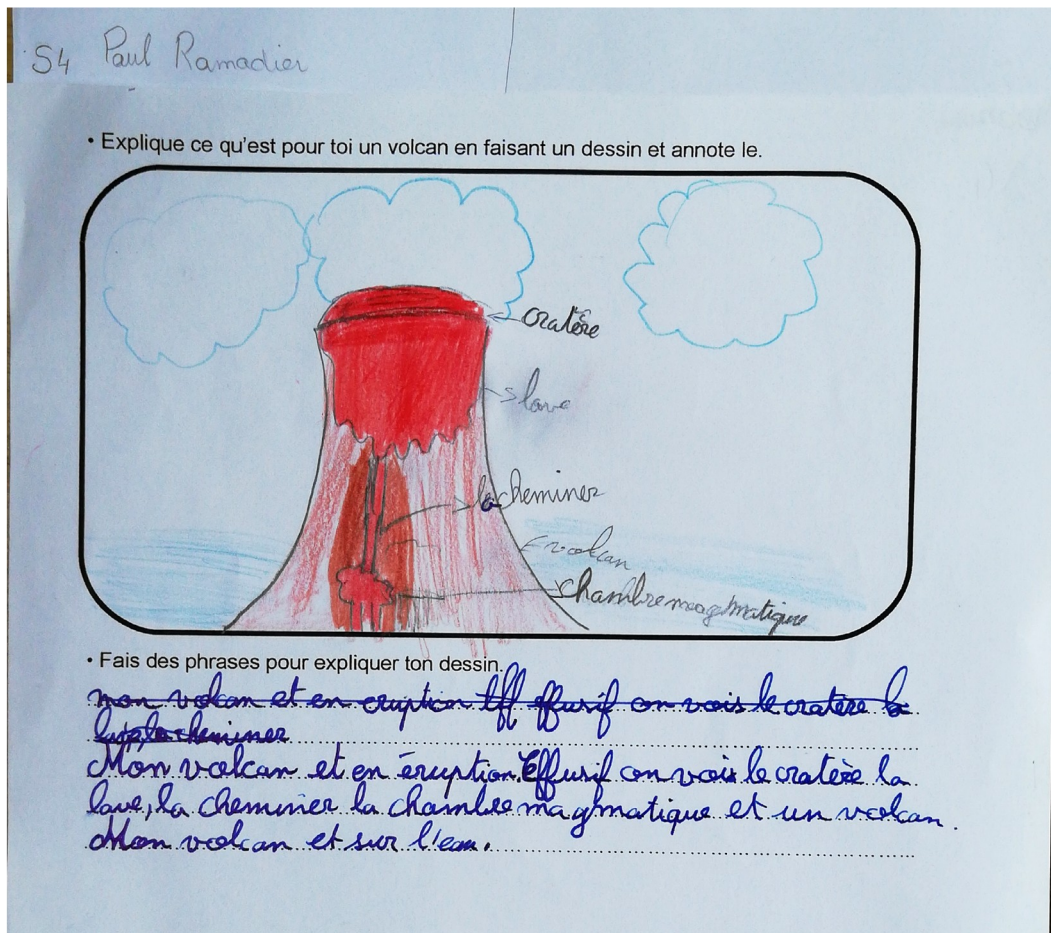 S4 Paul Ramadier
• Explique ce qu'est pour toi un volcan en faisant un dessin et annote le.
cratère
lave
la cheminer
volcan
chambre magmatique
• Fais des phrases pour expliquer ton dessin.
mon volcan et en eruption Eff effusif on vois le cratère la
la cheminer
Mon volcan et en éruption. Effusif on vois le cratère la
lave, la cheminer la chambre magmatique et un volcan.
Mon volcan et sur l'eau.